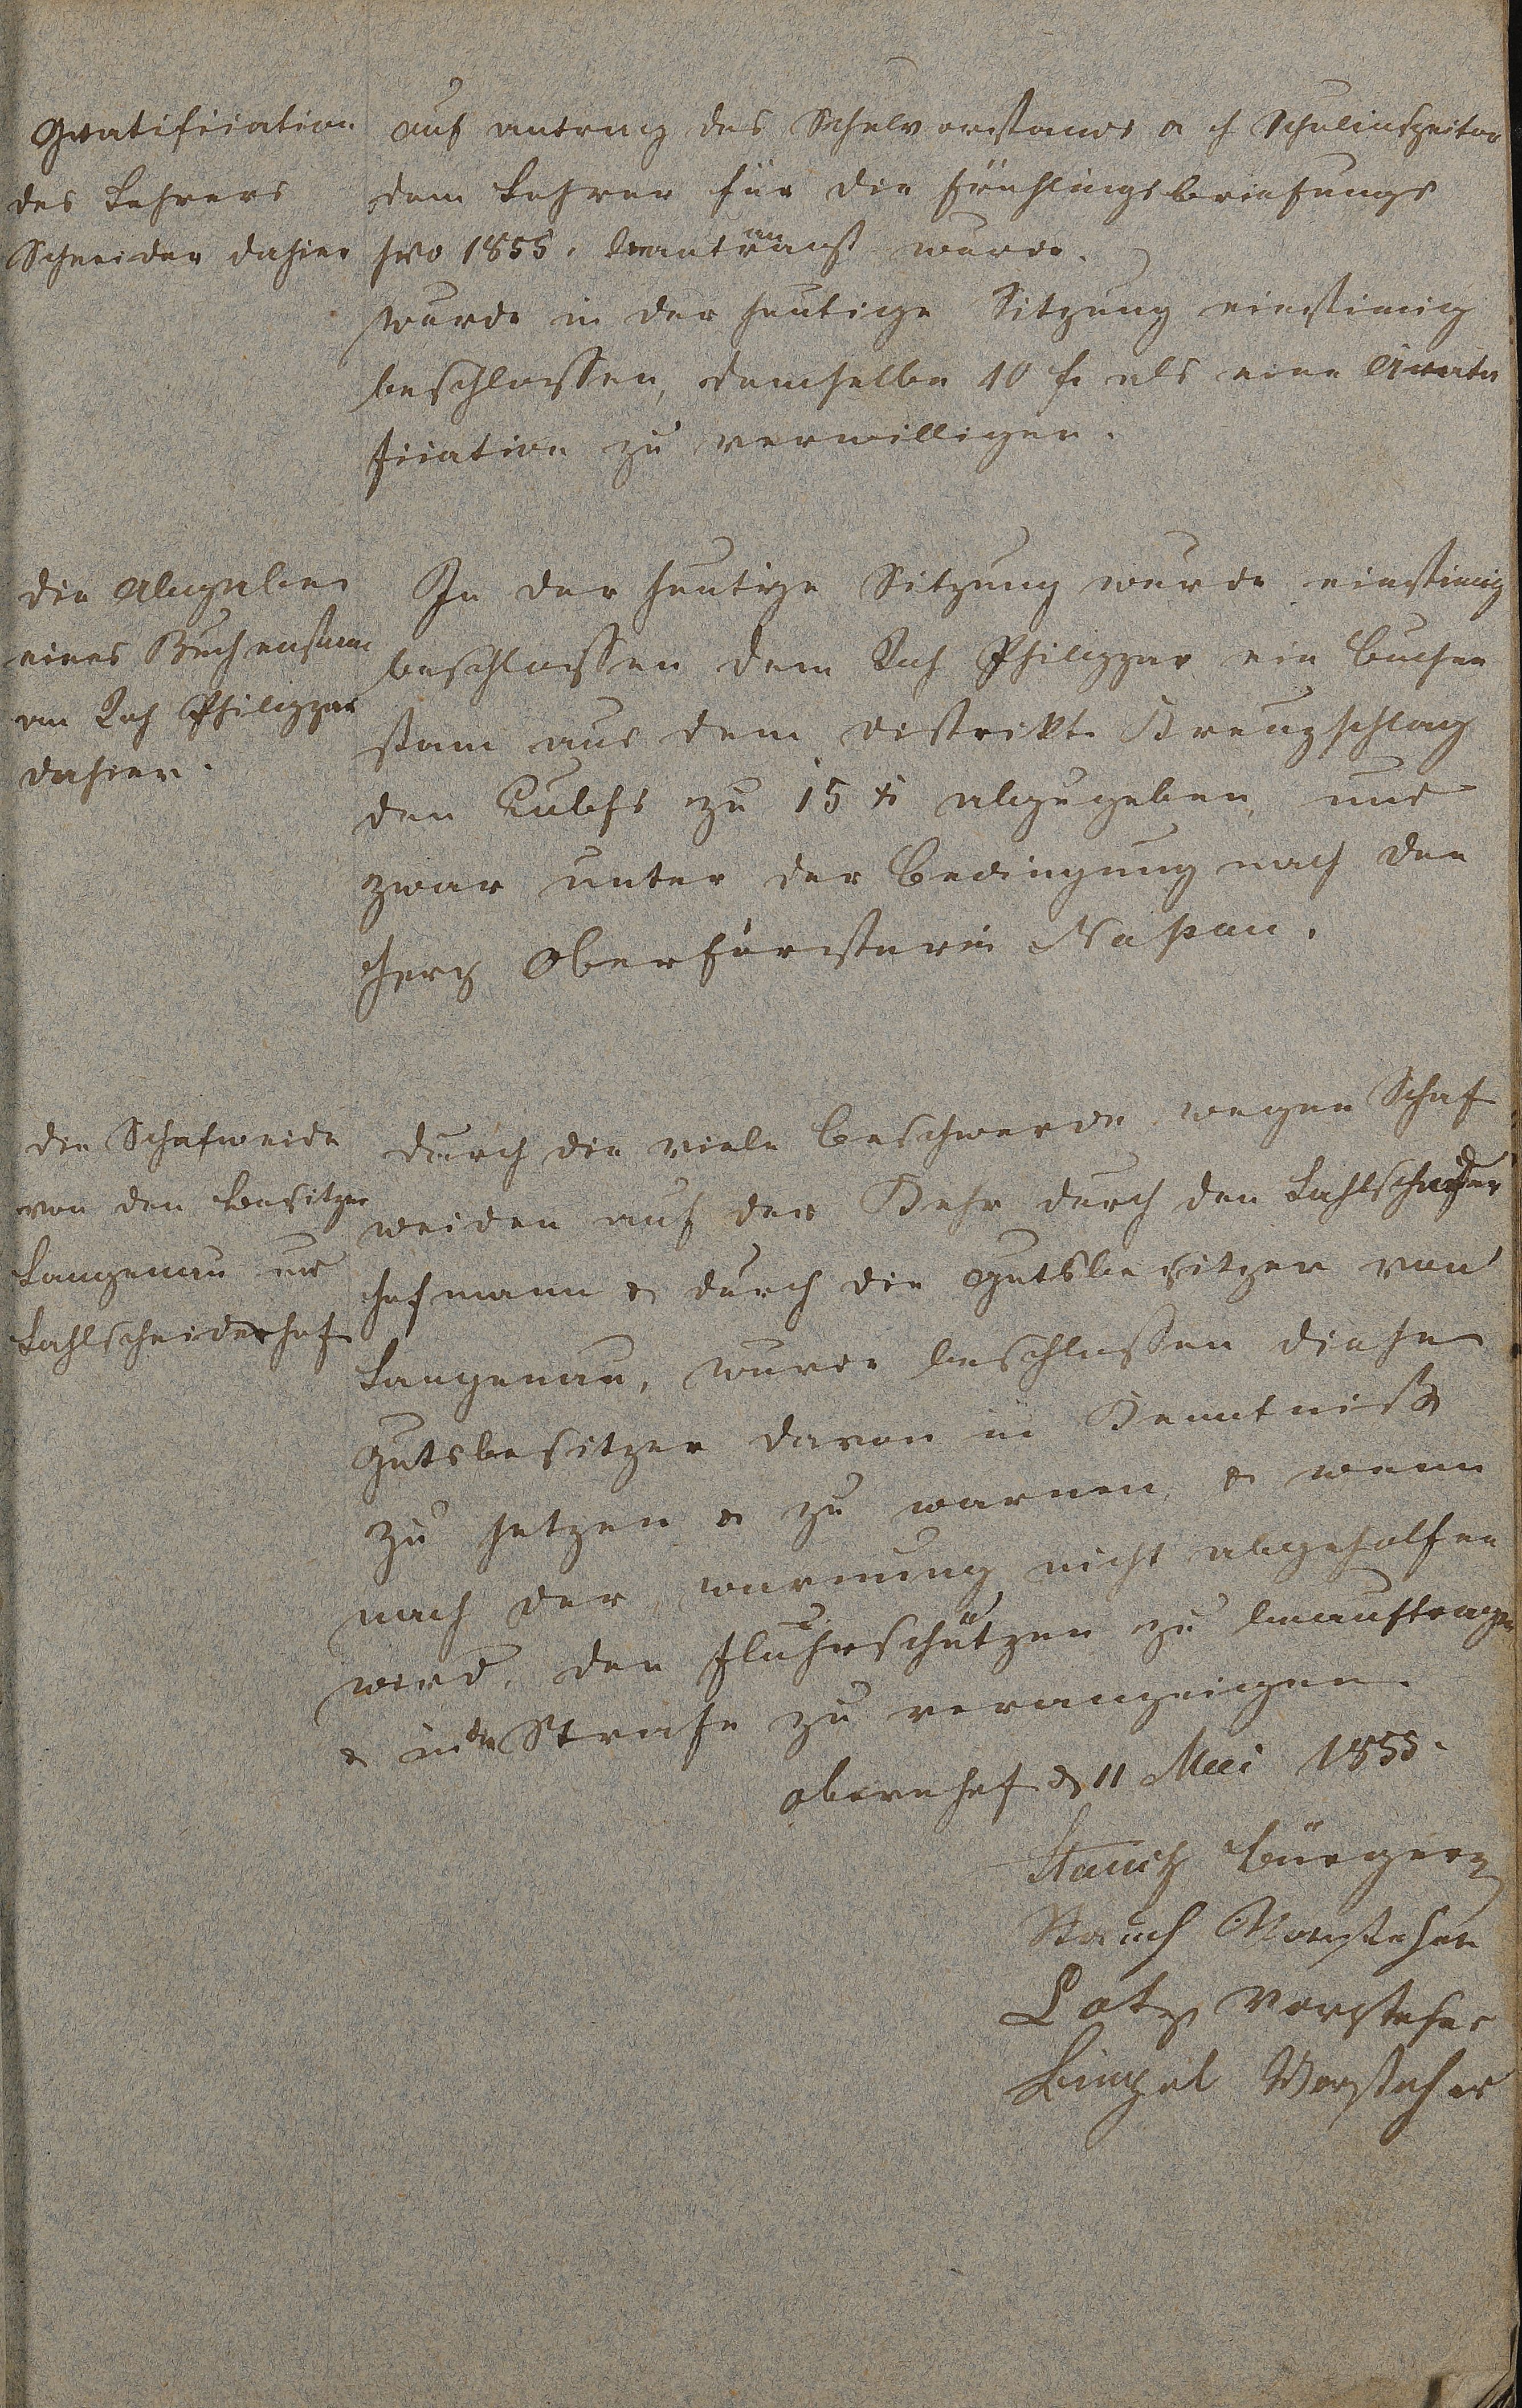 Gratification
des Lehrers
Schneider dahier
auf antrag des Schulvorstands & H Schulinspector
dem Lehrer für die Frühlingsbriefungs
pro 1855. beantragt wurde.
wurde in der heutige Sitzung einstimig
beschlossen, demselbe 10 f. als eine Grati
fication zu verwilligen.
die Abgabe
eines Buchenstam
an Joh Philippar
dahier.
In der heutige Sitzung wurde einstimig
beschlossen dem Joh Philippar ein Buchen
stam aus dem distrikt Kreuzschlag
den Cubfs zu 15 x abzugeben und
zwar unter der Bedingung nach der
Herz Oberförsterei Naßau.
die Schafweide
von den Besitzer
Langenau und
Lahlscheiderhof
durch die viele beschwerde wegen Schaf
weiden auf der Kehr durch den Lahlscheider
hofmann & durch die Gutsbesitzer von
Langenau, wurde beschlossen diese
Gutsbesitzer davon in Kenntniß
zu setzen & zu warnen, & wenn
nach der warnung nicht abgeholfen
wird, den Fluhrschützen zu beauftragen
& in die Strafe zu veranzeigen.
obernhof d 11 Mai 1855.
Stauch Bürgerm
Stauch Vorsteher
Lotz Vorsteher
Vorsteher